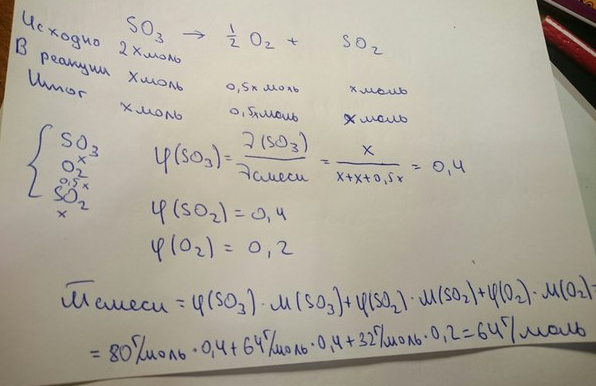 SO3 → 1/2 O2 + SO2
Исходно 2х моль
В реакции хмоль 0,5х моль х моль
Итог х моль 0,5х моль х моль
{ SO3 x
O2 0,5x
SO2 x
φ(SO3) = ν(SO3) / ν смеси = x / x+x+0,5x = 0,4
φ(SO2) = 0,4
φ(O2) = 0,2
M смеси = φ(SO3) · M(SO3) + φ(SO2) · M(SO2) + φ(O2) · M(O2) =
= 80 г/моль · 0,4 + 64 г/моль · 0,4 + 32 г/моль · 0,2 = 64 г/моль